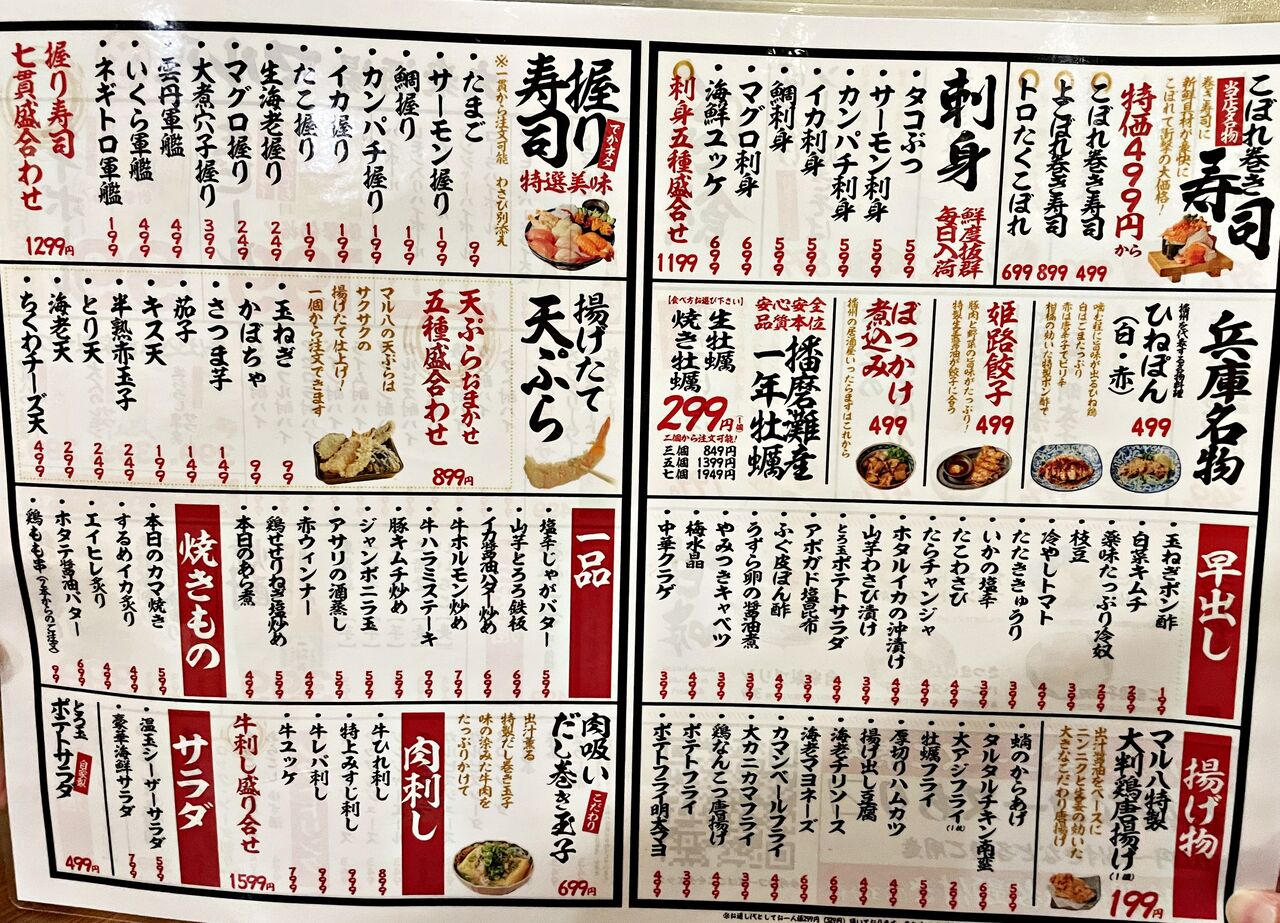 こぼれ巻き寿司
当店名物
巻き寿司に
新鮮具材が豪快に
こぼれて衝撃の大価格！
特価499円から
こぼれ巻き寿司 499
よこぼれ巻き寿司 899
トロたくこぼれ 699
刺身
鮮度抜群
毎日入荷
・タコぶつ 599
・サーモン刺身 599
・カンパチ刺身 599
・イカ刺身 599
・鯛刺身 599
・マグロ刺身 699
・海鮮ユッケ 699
刺身五種盛合せ 1199
握り寿司
でかネタ
特選美味
※一貫から注文可能 わさび別添え
・たまご 99
・サーモン握り 199
・鯛握り 199
・カンパチ握り 199
・イカ握り 199
・たこ握り 199
・生海老握り 249
・マグロ握り 249
・大煮穴子握り 399
・雲丹軍艦 499
・いくら軍艦 499
・ネギトロ軍艦 199
握り寿司
七貫盛合わせ
1299円
兵庫名物
播州を代表する名物料理
ひねぽん
(白・赤)
499
噛む程に旨味が出るひね鶏
白はごまたっぷり
赤は唐辛子でピリ辛
柑橘の効いた特製ポン酢で
姫路餃子
499
豚肉と野菜の旨味がたっぷり！
特製生姜醤油が餃子に合う
ぼっかけ
煮込み
499
播州の居酒屋いったらまずはこれから
安心安全
品質本位
播磨灘産
一年牡蠣
【食べ方お選び下さい】
生牡蠣
焼き牡蠣
299円(1個)
二個から注文可能！
三個 849円
五個 1399円
七個 1949円
揚げたて
天ぷら
天ぷらおまかせ
五種盛合わせ
899円
マル八の天ぷらは
サクサクの
揚げたて仕上げ！
一個から注文できます
・玉ねぎ 99
・かぼちゃ 99
・さつま芋 149
・茄子 149
・キス天 199
・半熟赤玉子 249
・とり天 249
・海老天 299
・ちくわチーズ天 499
早出し
・玉ねぎポン酢 199
・白菜キムチ 299
・薬味たっぷり冷奴 299
・枝豆 399
・冷やしトマト 499
・たたききゅうり 399
・いかの塩辛 399
・たこわさび 499
・たらチャンジャ 499
・ホタルイカの沖漬け 499
・山芋わさび漬け 499
・とろ玉ポテトサラダ 499
・アボガド塩昆布 499
・ふぐ皮ぽん酢 499
・うずら卵の醤油煮 399
・やみつきキャベツ 399
・梅水晶 499
・中華クラゲ 399
一品
・塩辛じゃがバター 599
・山芋とろろ鉄板 699
・イカ醤油バター炒め 699
・牛ホルモン炒め 799
・牛ハラミステーキ 999
・豚キムチ炒め 599
・ジャンボニラ玉 599
・アサリの酒蒸し 599
・赤ウィンナー 499
・鶏せせりねぎ塩炒め 599
・本日のあら煮 499
焼きもの
・本日のカマ焼き 599
・するめイカ炙り 499
・エイヒレ炙り 499
・ホタテ醤油バター 699
・鶏もも串(2本からのご注文) 99
揚げ物
マル八特製
大判鶏唐揚げ(1個)
199円
出汁醤油をベースに
ニンニクと生姜の効いた
大きなこだわり唐揚げ
・蛸のからあげ 599
・タルタルチキン南蛮 699
・大アジフライ(1枚) 299
・牡蠣フライ 599
・厚切りハムカツ 499
・揚げ出し豆腐 499
・海老チリソース 699
・海老マヨネーズ 699
・カマンベールフライ 499
・大カニカマフライ 499
・鶏なんこつ唐揚げ 499
・ポテトフライ 399
・ポテトフライ明太マヨ 499
肉吸い
だし巻き玉子
こだわり
699円
出汁薫る
特製だし巻き玉子
味の染みた牛肉を
たっぷりかけて
肉刺し
・牛ひれ刺し 899
・特上みすじ刺し 999
・牛レバ刺し 999
・牛ユッケ 799
牛刺し盛り合せ
1599円
サラダ
・温玉シーザーサラダ 599
・豪華海鮮サラダ 799
とろ玉
ポテトサラダ
自家製
499円
※お通し代としてお一人様299円(329円)頂いて